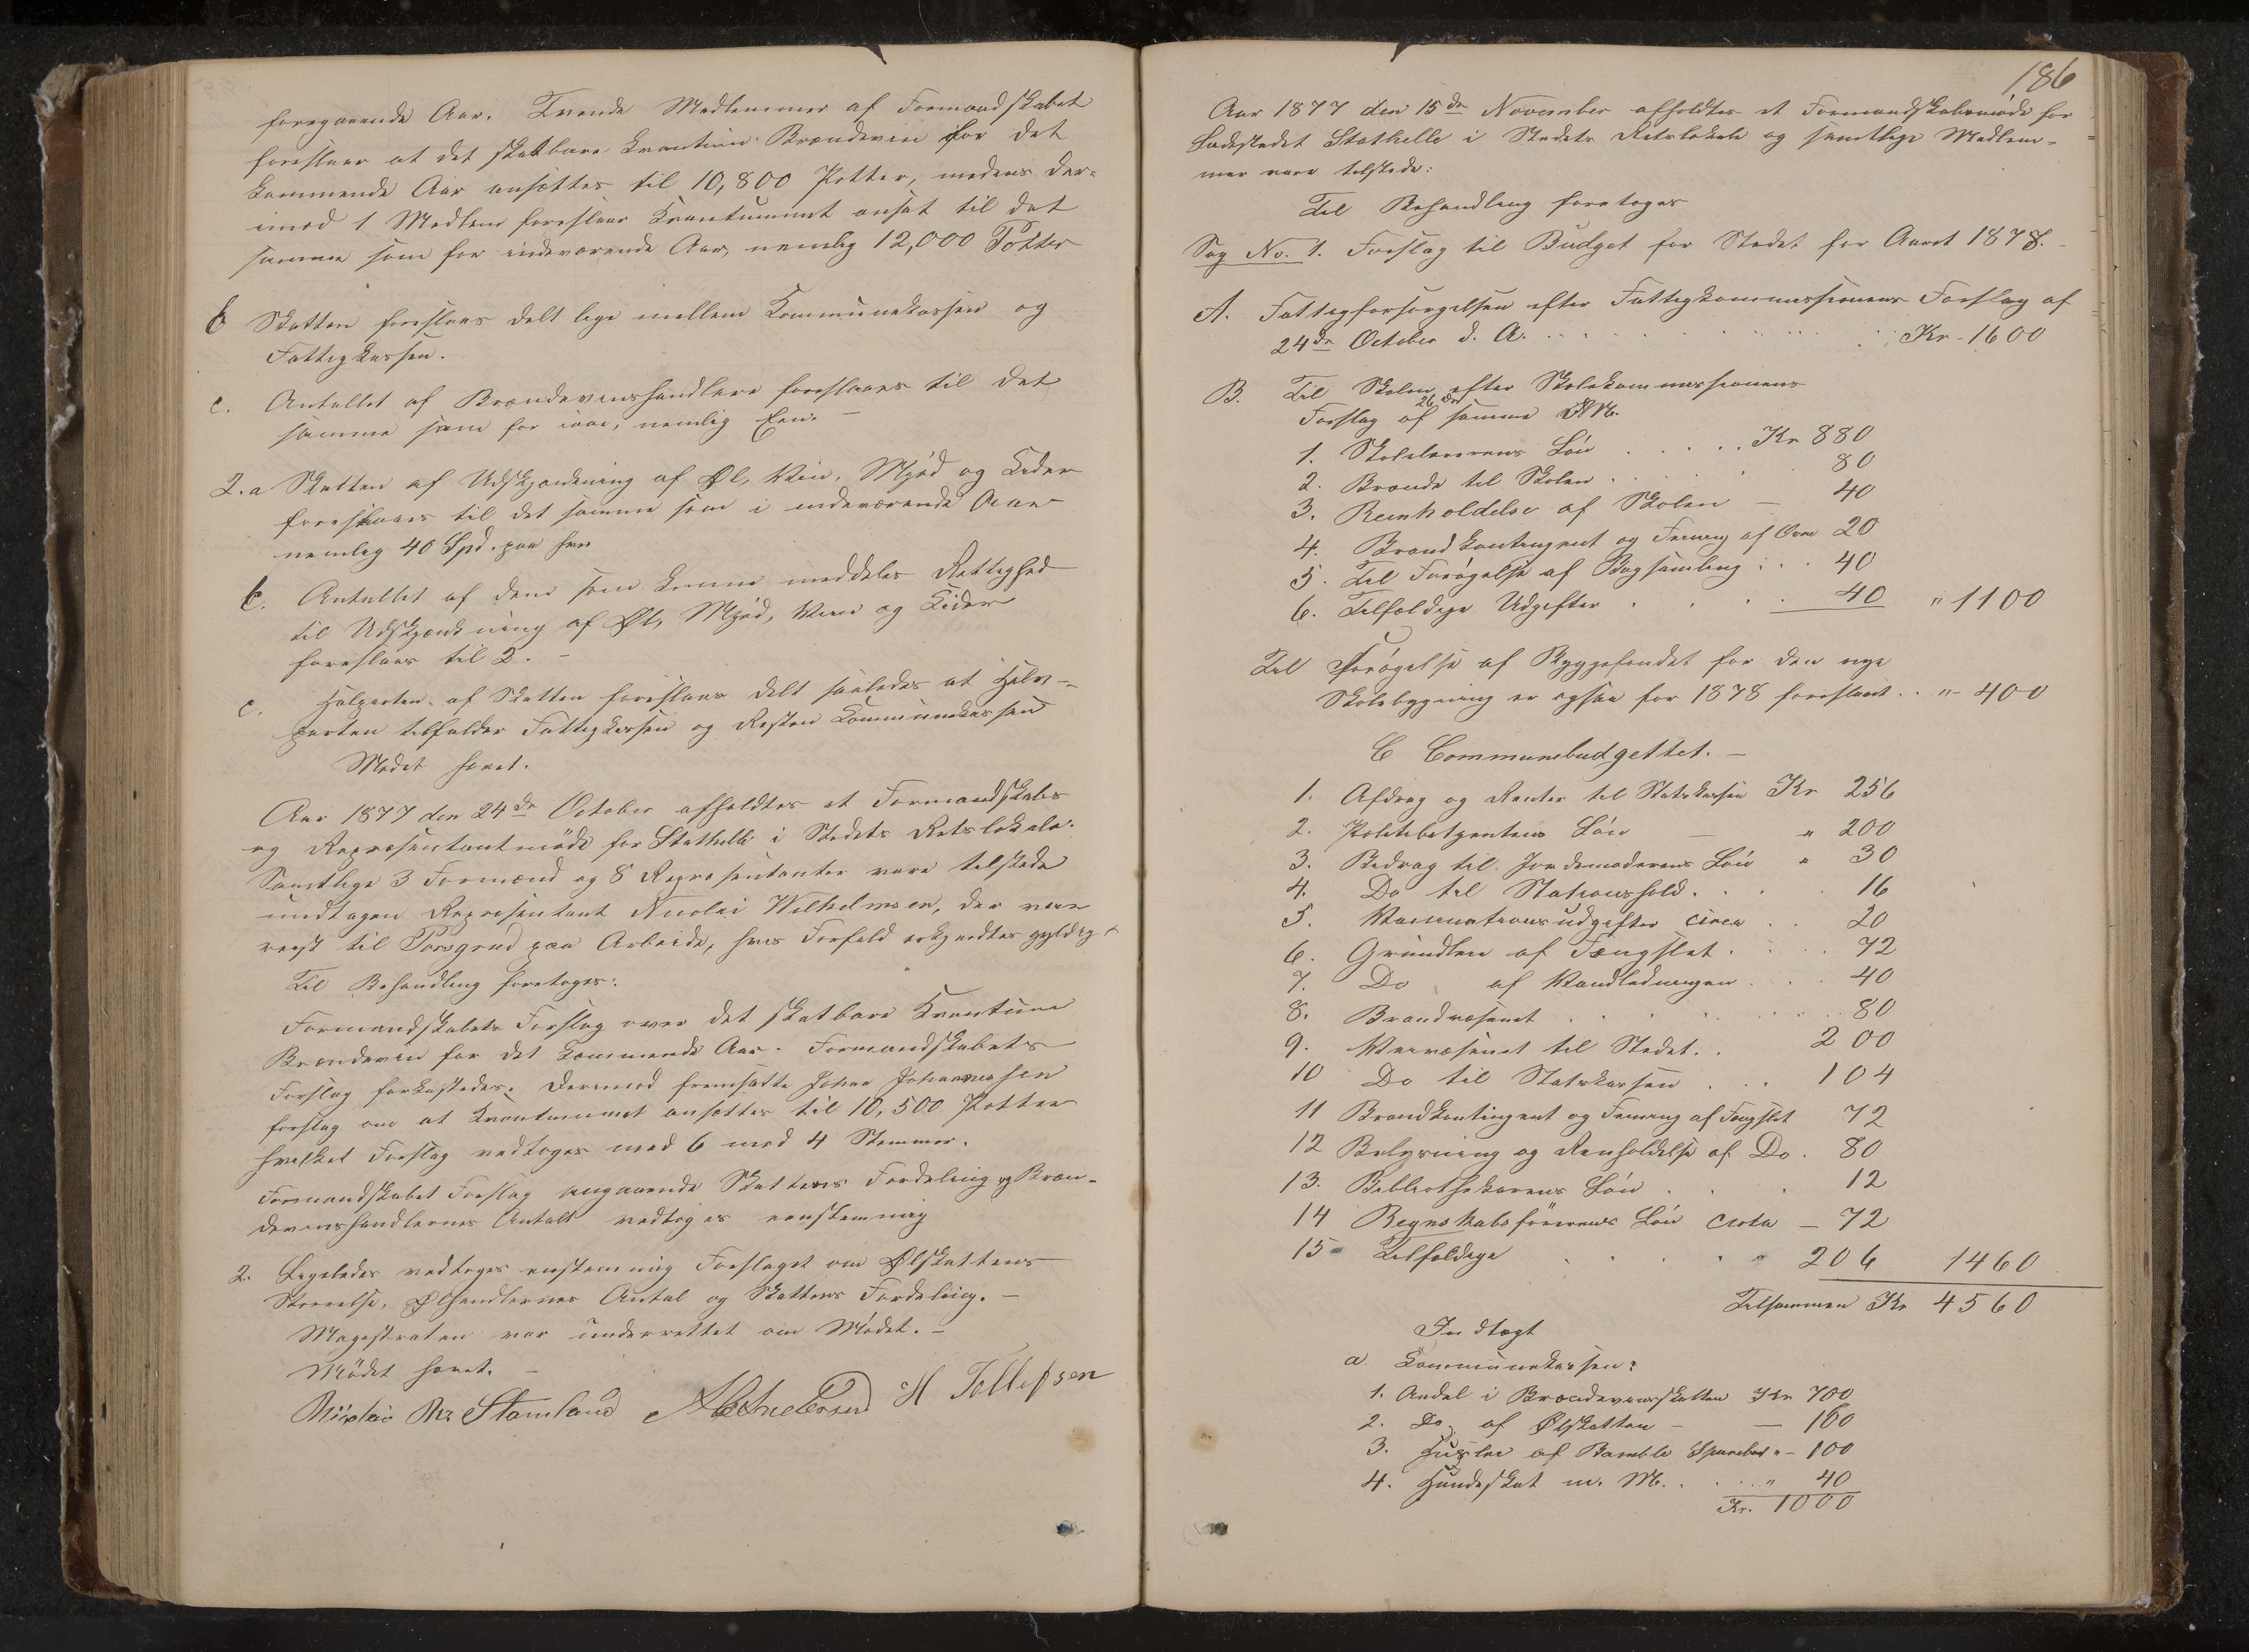 foregaaende Aar. Tvende Medlemmer af Formandskabet
foreslaar at det skatbare Kvantum Brændeviin for det
kommende Aar ansættes til 10,800 Potter, medens der=
imod 1 Medlem foreslaar Kvantummet ansat til det
samme som for indeværende Aar, nemlig 12,000 Potter
b Skatten foreslaaes delt lige mellem Kommunekassen og
Fattigkassen.
c. Antallet af Brændevinshandlere foreslaaes til det
samme som for iaar, nemlig Een. –
2.a Skatten af Udskjænkning af Øl, Vin, Mjød og Cider
foreslaaes til det samme som i indeværende Aar
nemlig 40 Spd. paa hver
b. Antallet af dem som kunne meddeles Rettighed
til Udskjænkning af Øl, Mjød, Vin og Cider
foreslaaes til 2. –
c. Halvparten af Skatten foreslaaes delt saaledes at Halv-
parten tilfalder Fattigkassen og Resten Kommunekassen
Mødet hævet.
Aar 1877 den 24de October afholdtes et Formandskabs
og Repræsentantmøde for Stathelle i Stedets Retslokale.
Samtlige 3 Formænd og 8 Repræsentanter vare tilstede
undtagen Repræsentant Nicolai Wilhelmsen, der var
reist til Porsgrund paa Arbeide, hvis Forfald erkjendtes gyldigt
Til Behandling foretoges:
Formandskabets Forslag over det skatbare Kvantum
Brændeviin for det kommende Aar. Formandskabets
Forslag forkastedes. Derimod fremsatte Johan Johannessen
forslag om at Kvantummet ansættes til 10,500 Potter
hvilket Forslag vedtoges med 6 mod 4 Stemmer.
Formandskabet Forslag angaaende Skattens Fordeling og Bræn-
devinshandlernes Antalt vedtoges eenstemmig
2. Ligeledes vedtoges enstemmig Forslaget om Ølskattens
Størrelse, Ølhandlernes Antal og Skattens Fordeling. –
Magistraten var underrettet om Mødet. –
Mødet hævet. –
Stamland H Tollefsen
186
Aar 1877 den 15de November afholdtes et Formandskabsmöde for
Ladestedet Stathelle i Stedets Retslokale og samtlige Medlem-
mer vare tilstede:
Til Behandling foretoges
Sag No. 1. Forslag til Budget for Stedet for Aaret 1878.
A. Fattigforsørgelsen efter Fattigkommissionens Forslag af
24de October d. A. . . . . . Kr. 1600
B. Til Skolen efter Skolekommissionens
Forslag af 26de samme M.
1. Skolelærerens Løn . . . . Kr 880
2. Brænde til Skolen . . . 80
3. Reenholdelse af Skolen – 40
4. Brandkontingent og Feining af Ovn 20
5. Til Forøgelse af Bogsamling . . . 40
6. Tilfældige Udgifter . . . . 40 " 1100
Til Forøgelse af Byggefondet for den nye
Skolebygning er ogsaa for 1878 foreslaaet . . "- 400
C Communebudgettet. –
1. Afdrag og Renter til Statskassen Kr 256
2. Politibetjentens Løn – " 200
3. Bidrag til Jordemoderens Løn " 30
4. Do til Stationshold . . . 16
5. Vaccinationsudgifter circa . . 20
6. Grundleie af Fængslet . . . 72
7. Do af Vandledningen . . . 40
8. Brandvæsenet . . . . . . 80
9. Veivæsenet til Stedet . . 200
10 Do til Statskassen . . . 104
11 Brandkontingent og Feining af Fængslet 72
12 Belysning og Renholdelse af Do. 80
13. Bibliothekarens Løn . . . 12
14 Regnskabsførerens Løn – 72
15 Tilfældige . . . . . 206 1460
Tilsammen Kr 4560
Indtægt
a Kommunekassen:
1. Andel i Brændevinsskatten Kr 700
2. Do. af Ølskatten – – 160
3. Husleie af Bamble Sparebank " – 100
4. Hundeskat m. M. . . . " 40
Kr. 1000